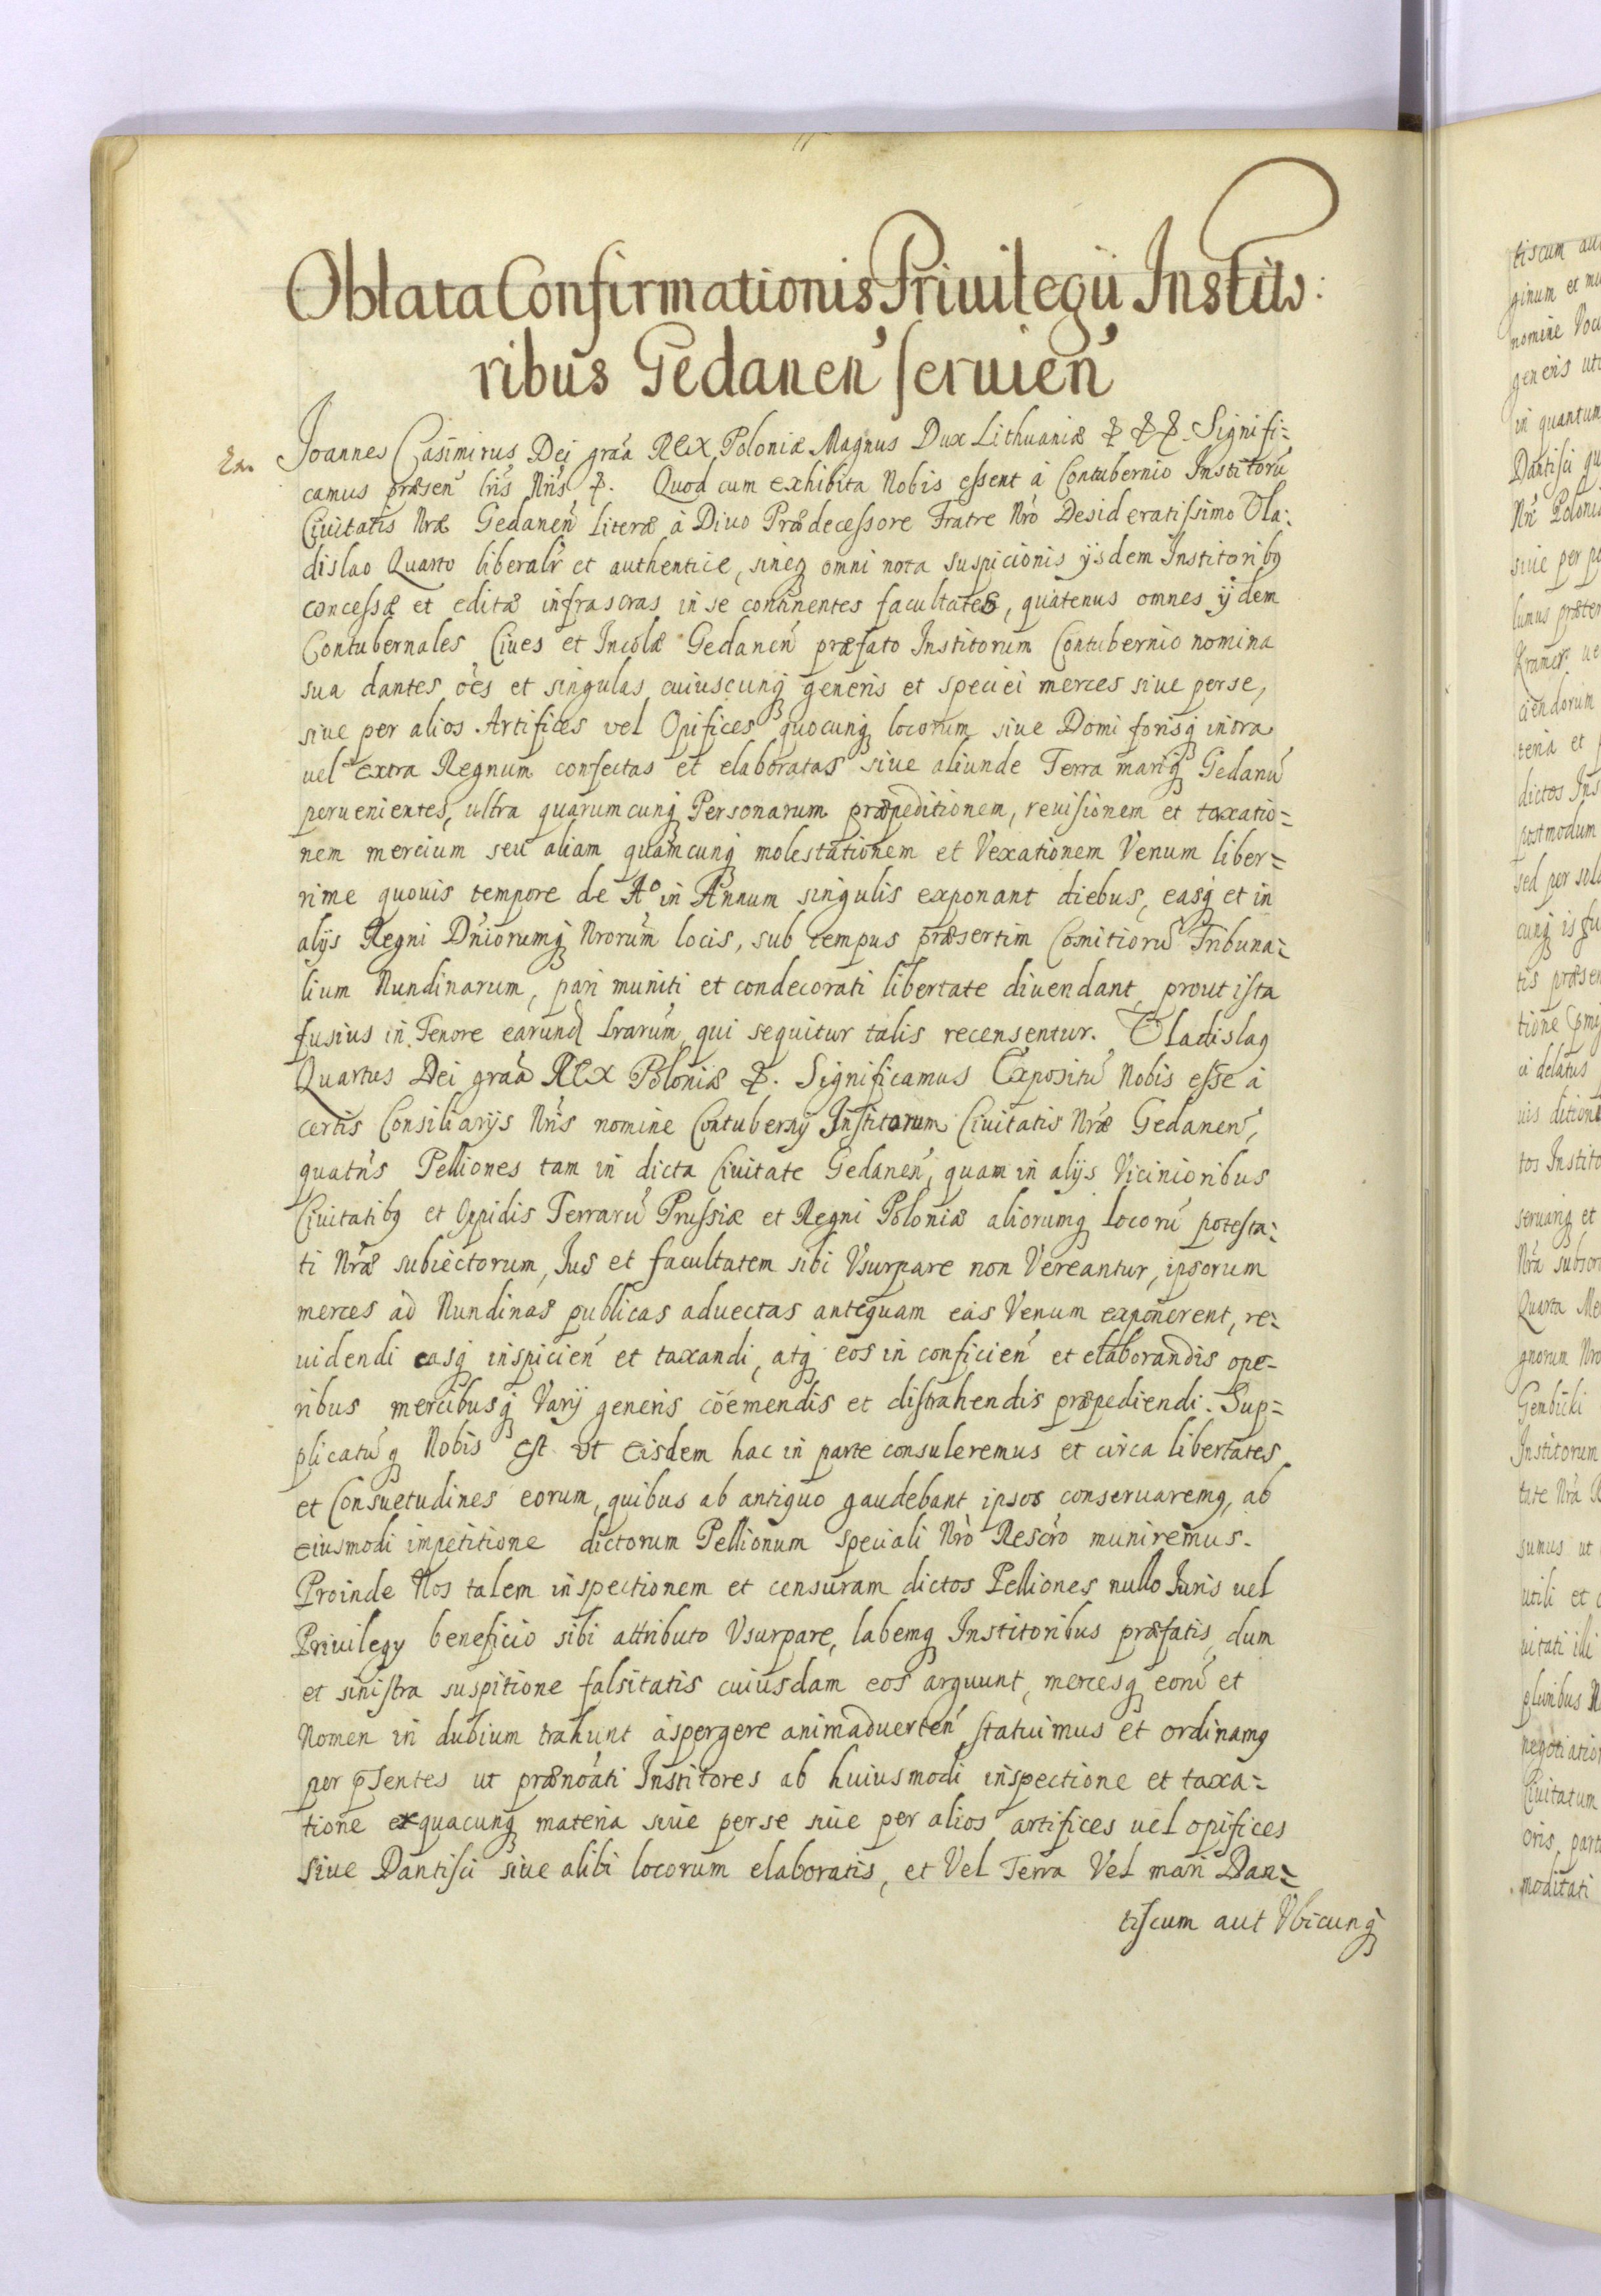 Oblata Confirmationis Priuilegij Institu:
ribus Gedanen̄ seruien̄
Joannes Casimirus Dei gra᷈a REX Poloniæ Magnus Dux Lithuaniæ Signifi=
camus præsen̄ lris̄ Nris̄. Quod cum exhibita Nobis essent à Contubernio Institorū
Ciuitatis Nræ Gedanen̄ literæ à Diuo Prædecessore Fratre Nrō Desideratissimo Vla:
dislao Quarto liberalr̄ et authentice, sineq omni nota suspicionis ijsdem Institoribq
concessæ et editæ infrascras in se continentes facultates, quatenus omnes ijdem
Contubernales Ciues et Incolæ Gedanen̄ præfato Institorum Contubernio nomina
sua dantes oēs et singulas cuiuscunq generis et speciei merces siue per se,
siue per alios Artifices vel Opifices quocunq locorum siue Domi forisq intra
uel extra Regnum confectas et elaboratas siue aliunde Terra mariq Gedanū
peruenientes, ultra quarumcunq Personarum præpeditionem, reuisionem et taxatio=
nem mercium seu aliam quamcunq molestationem et Vexationem Venum liber=
rime quouis tempore de Aº in Annum singulis exponant diebus, easq et in
alijs Regni Dn̄iorumq Nrorum locis, sub tempus præsertim Comitiorū Tribuna=
lium Nundinarum, pari muniti et condecorati libertate diuendant, prout ista
fusius in Tenore earund lrarum, qui sequitur talis recensentur. Vladislaq
Quartus Dei graā REX Poloniæ. Significamus Expositū Nobis esse à
certis Consiliarijs Nris̄ nomine Contubernij Institorum Ciuitatis Nræ Gedanen̄,
quatn̄s Pelliones tam in dicta Ciuitate Gedanen̄, quam in alijs Vicinioribus
Ciuitatibq et Oppidis Terrarū Prussiæ et Regni Poloniæ aliorumq locorū potesta:
ti Nræ subiectorum, Jus et facultatem sibi Vsurpare non Vereantur, ipsorum
merces ad Nundinas publicas aduectas antequam eas Venum exponerent, re=
uidendi easq inspicien̄ et taxandi, atq eos in conficien̄ et elaborandis ope=
ribus mercibusq Varij generis coëmendis et distrahendis præpediendi. Sup=
plicatū q Nobis est vt eisdem hac in parte consuleremus et circa libertates
et Consuetudines eorum, quibus ab antiquo gaudebant ipsos conseruaremq, ab
eiusmodi impetitione dictorum Pellionum speciali Nrō Rescrō muniremus.
Proinde Nos talem inspectionem et censuram dictos Pelliones nullo Juris uel
Priuilegy beneficio sibi attributo Vsurpare, labemq Institoribus præfatis, dum
et sinistra suspitione falsitatis cuiusdam eos arguunt, mercesq eorū et
Nomen in dubium trahunt aspergere animaduerten̄ statuimus et ordinamq
per p̄sentes ut prænoāti Institores ab huiusmodi inspectione et taxa=
tione ex quacunq materia siue per se siue per alios artifices uel opifices
siue Dantisci siue alibi locorum elaboratis, et Vel Terra Vel mari Dan=
tiscum aut Vbicunq